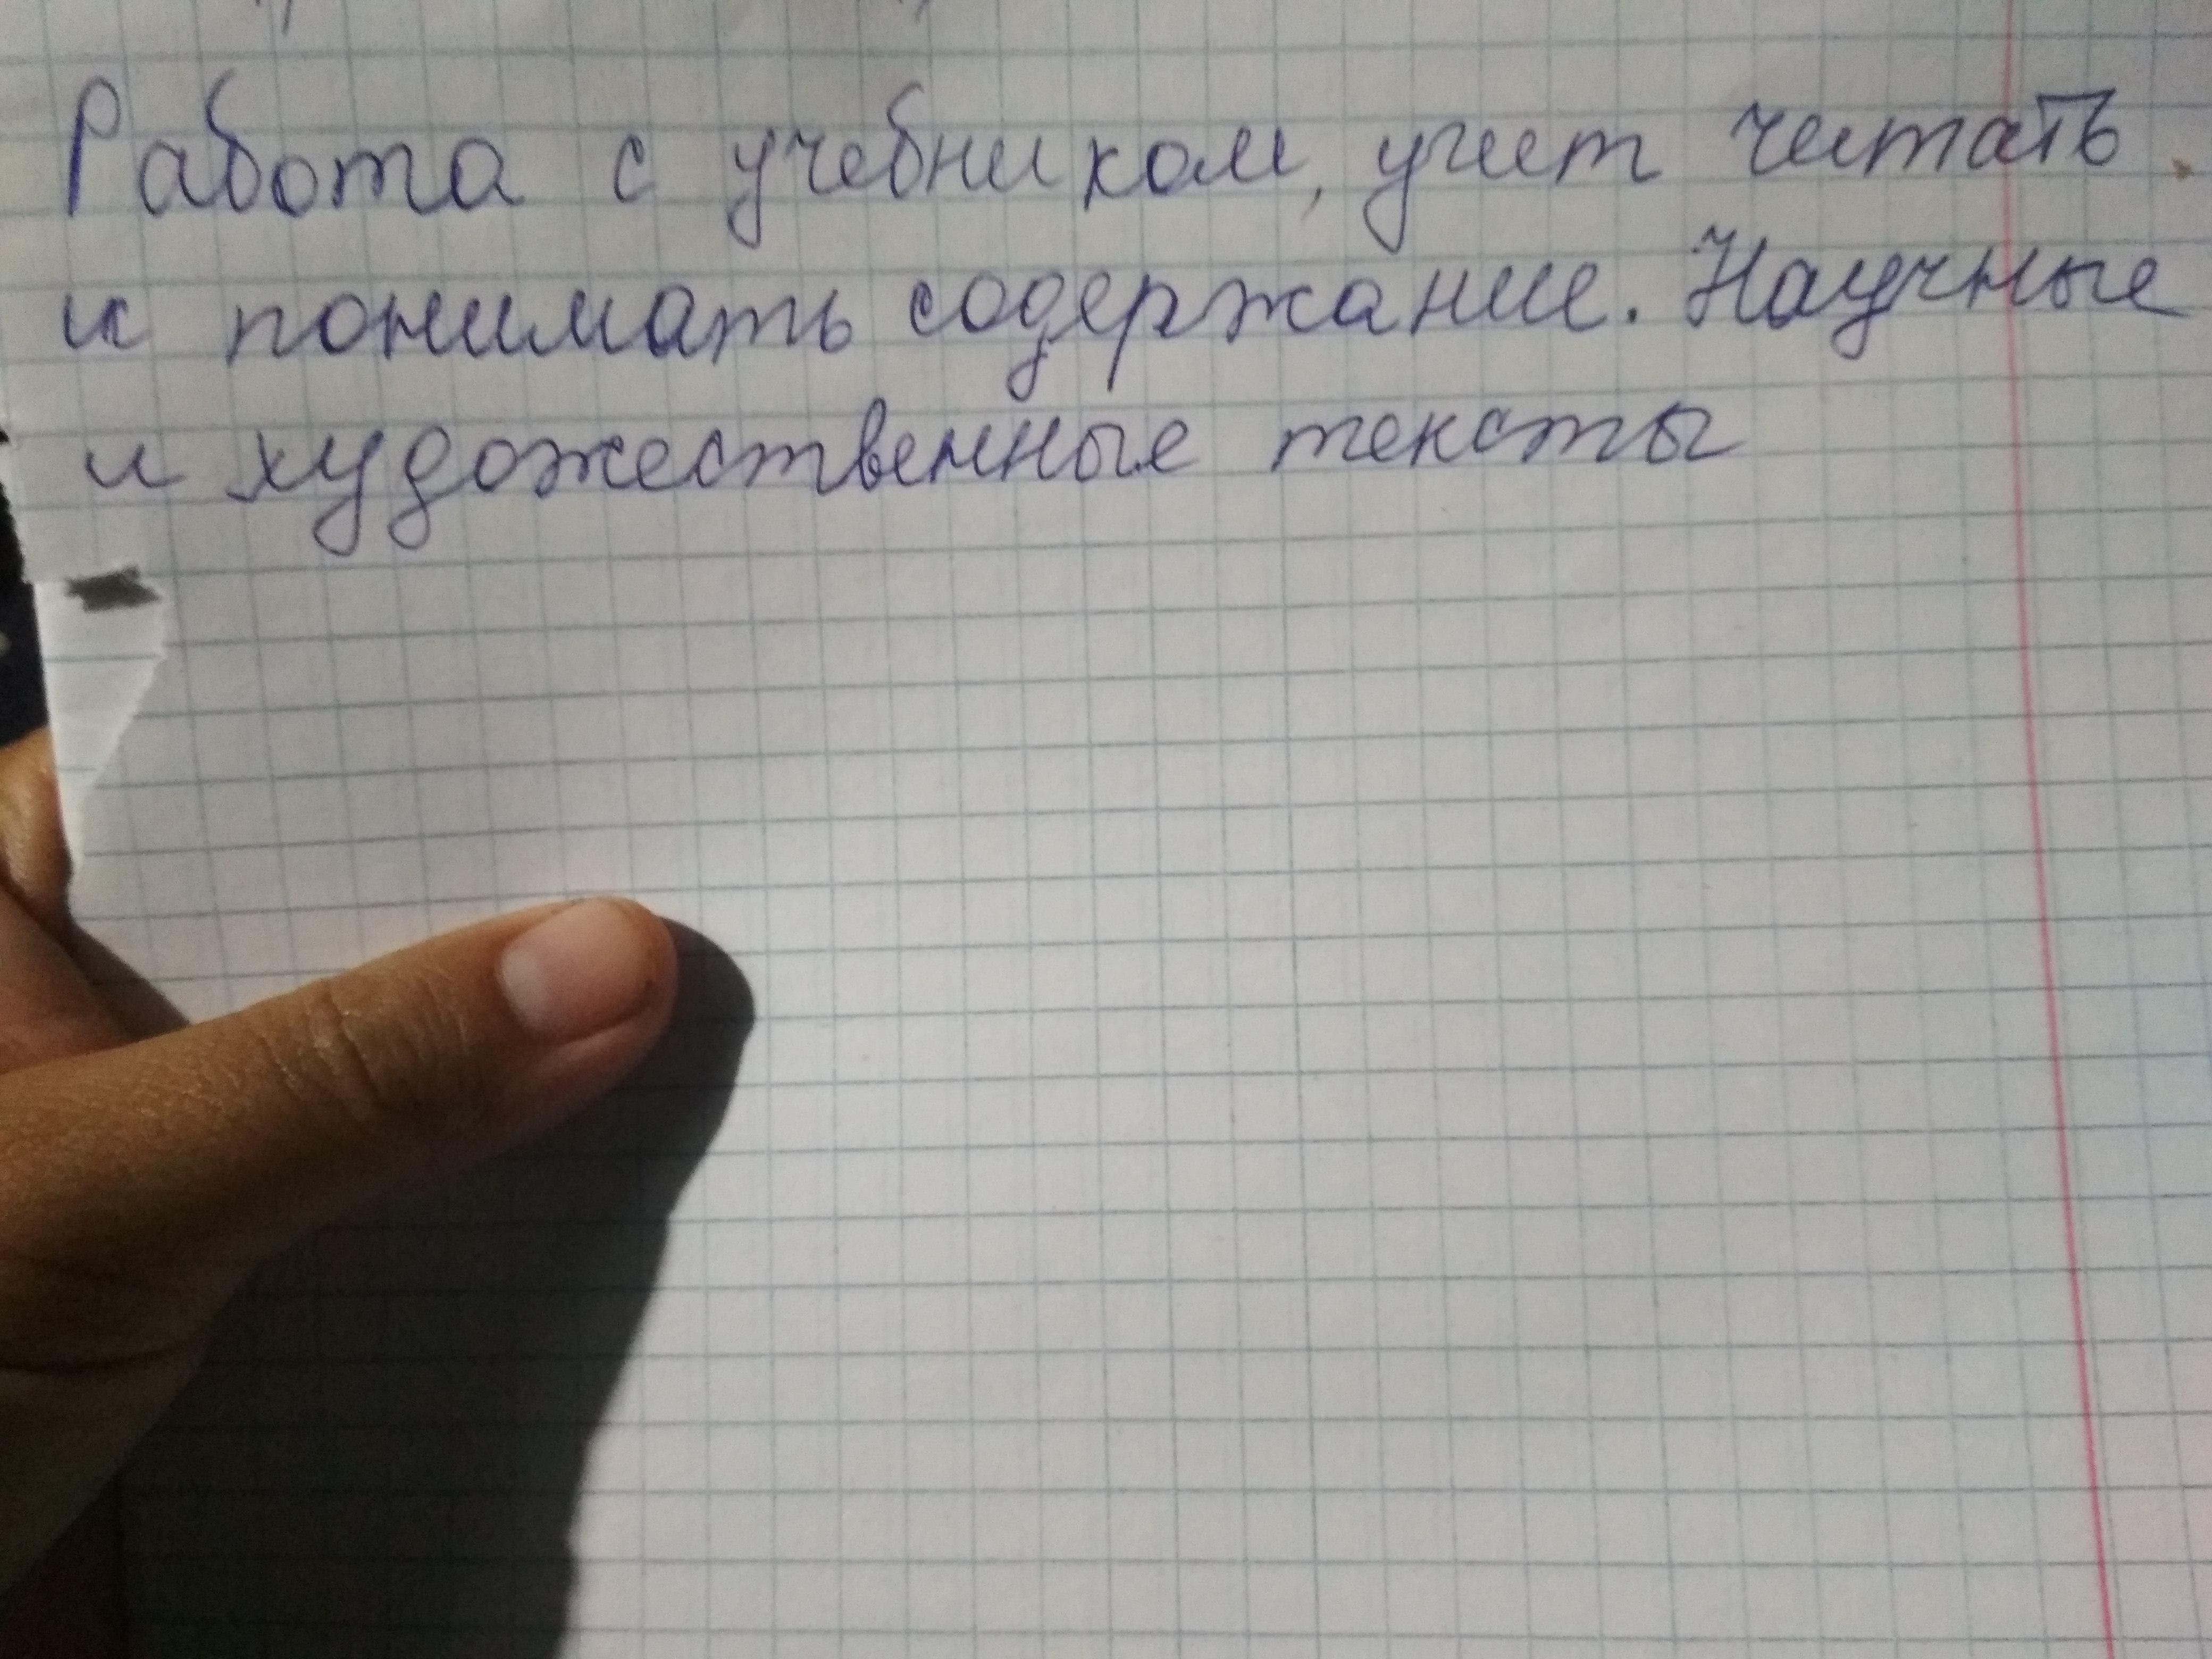 Работа с учебником, учит читать
и понимать содержание. Научные
и художественные тексты